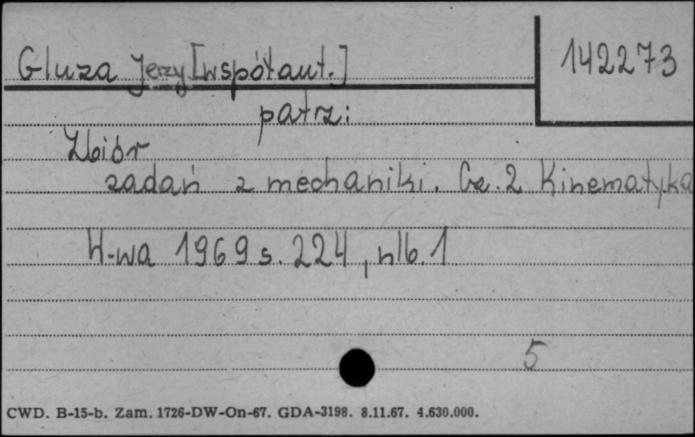 142273
Gluza Jerzy [współaut.]
patrz:
Zbiór
zadań z mechaniki. Cz. 2 Kinematyka
W-wa 1969 s. 224, nlb. 1
5
CWD. B-15-b. Zam. 1726-DW-On-67. GDA-3198. 8.11.67. 4.630.000.